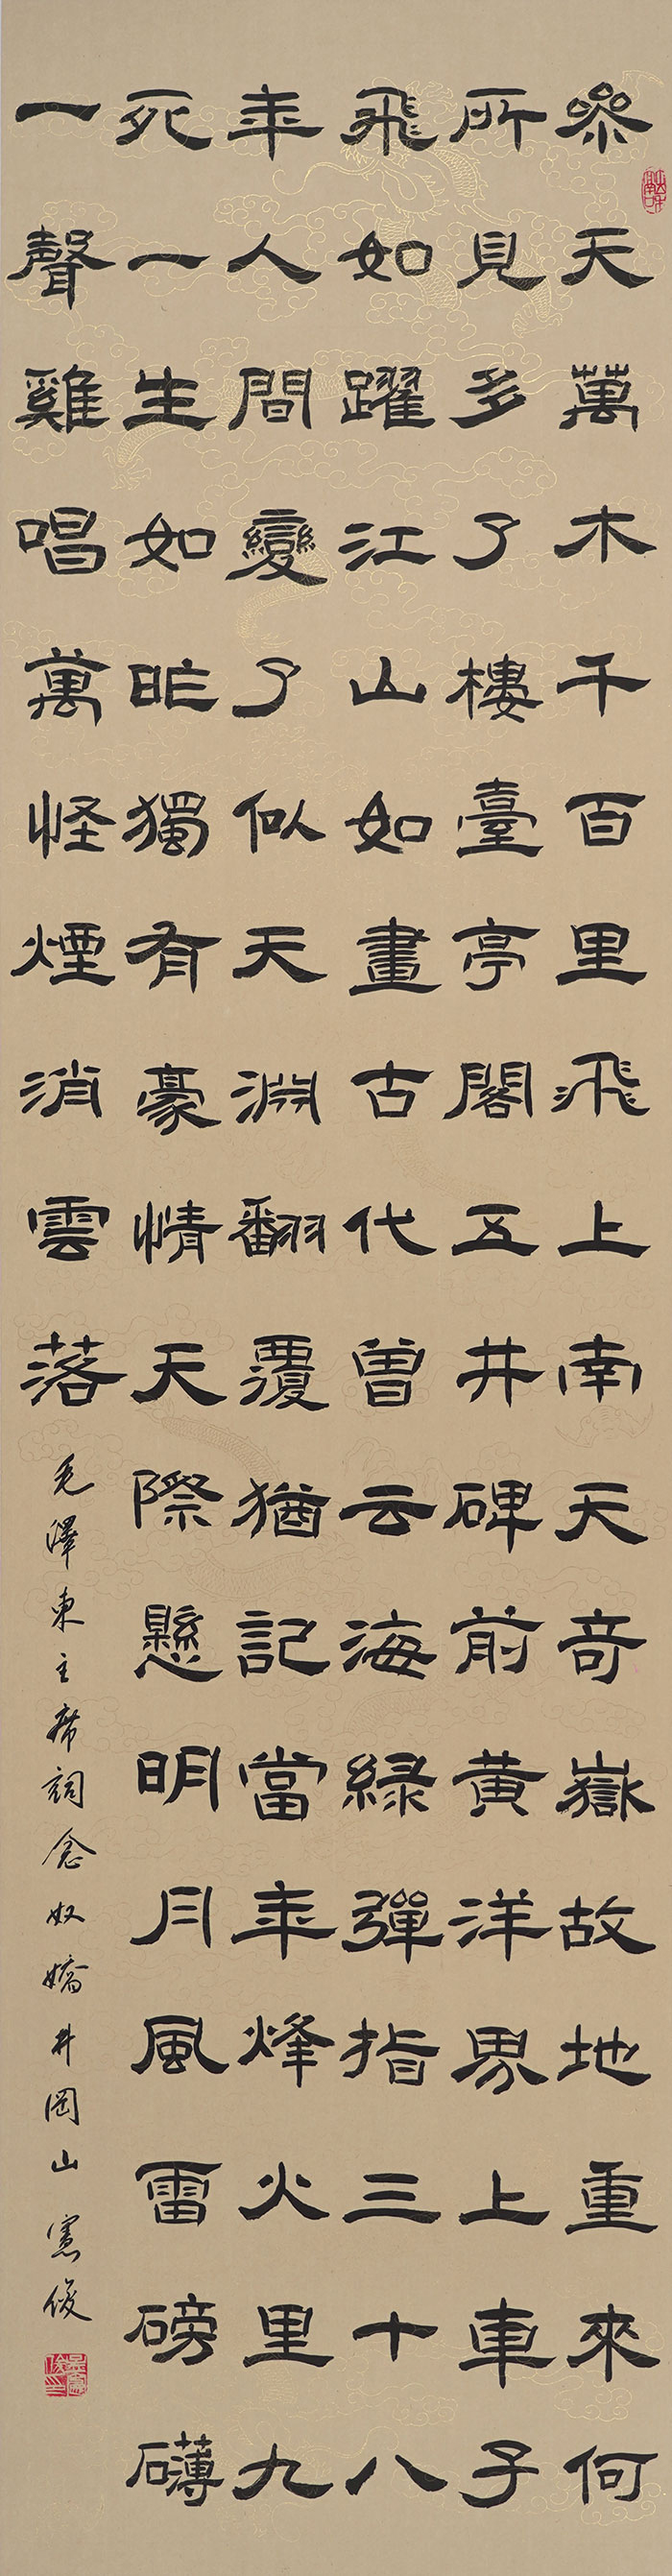 參天萬木千百里飛上南天奇嶽故地重來何
所見多了樓臺亭閣五井碑前黃洋界上車子
飛如躍江山如畫古代曾云海緑彈指三十八
年人間變了似天淵翻覆猶記當年烽火里九
死一生如昨獨有豪情天際懸明月風雷磅礴
一聲雞唱萬怪煙消雲落
毛澤東主席詞念奴嬌井岡山 憲俊